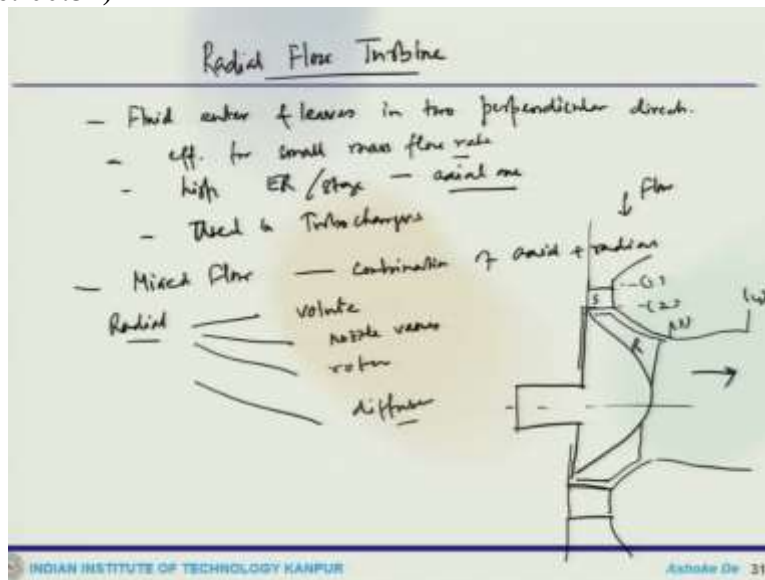 Radial Flow Turbine
- Fluid enter & leaves in two perpendicular direch.
- eff. for small mass flow rate
- high ER/stage - axial one
↓ Flow
- Used in Turbochargers
- Mixed Flow — combination of axial + radial
Radial
volute
nozzle vanes
rotor
diffuser
(1)
S
(2)
R
INDIAN INSTITUTE OF TECHNOLOGY KANPUR
Ashoke De 31